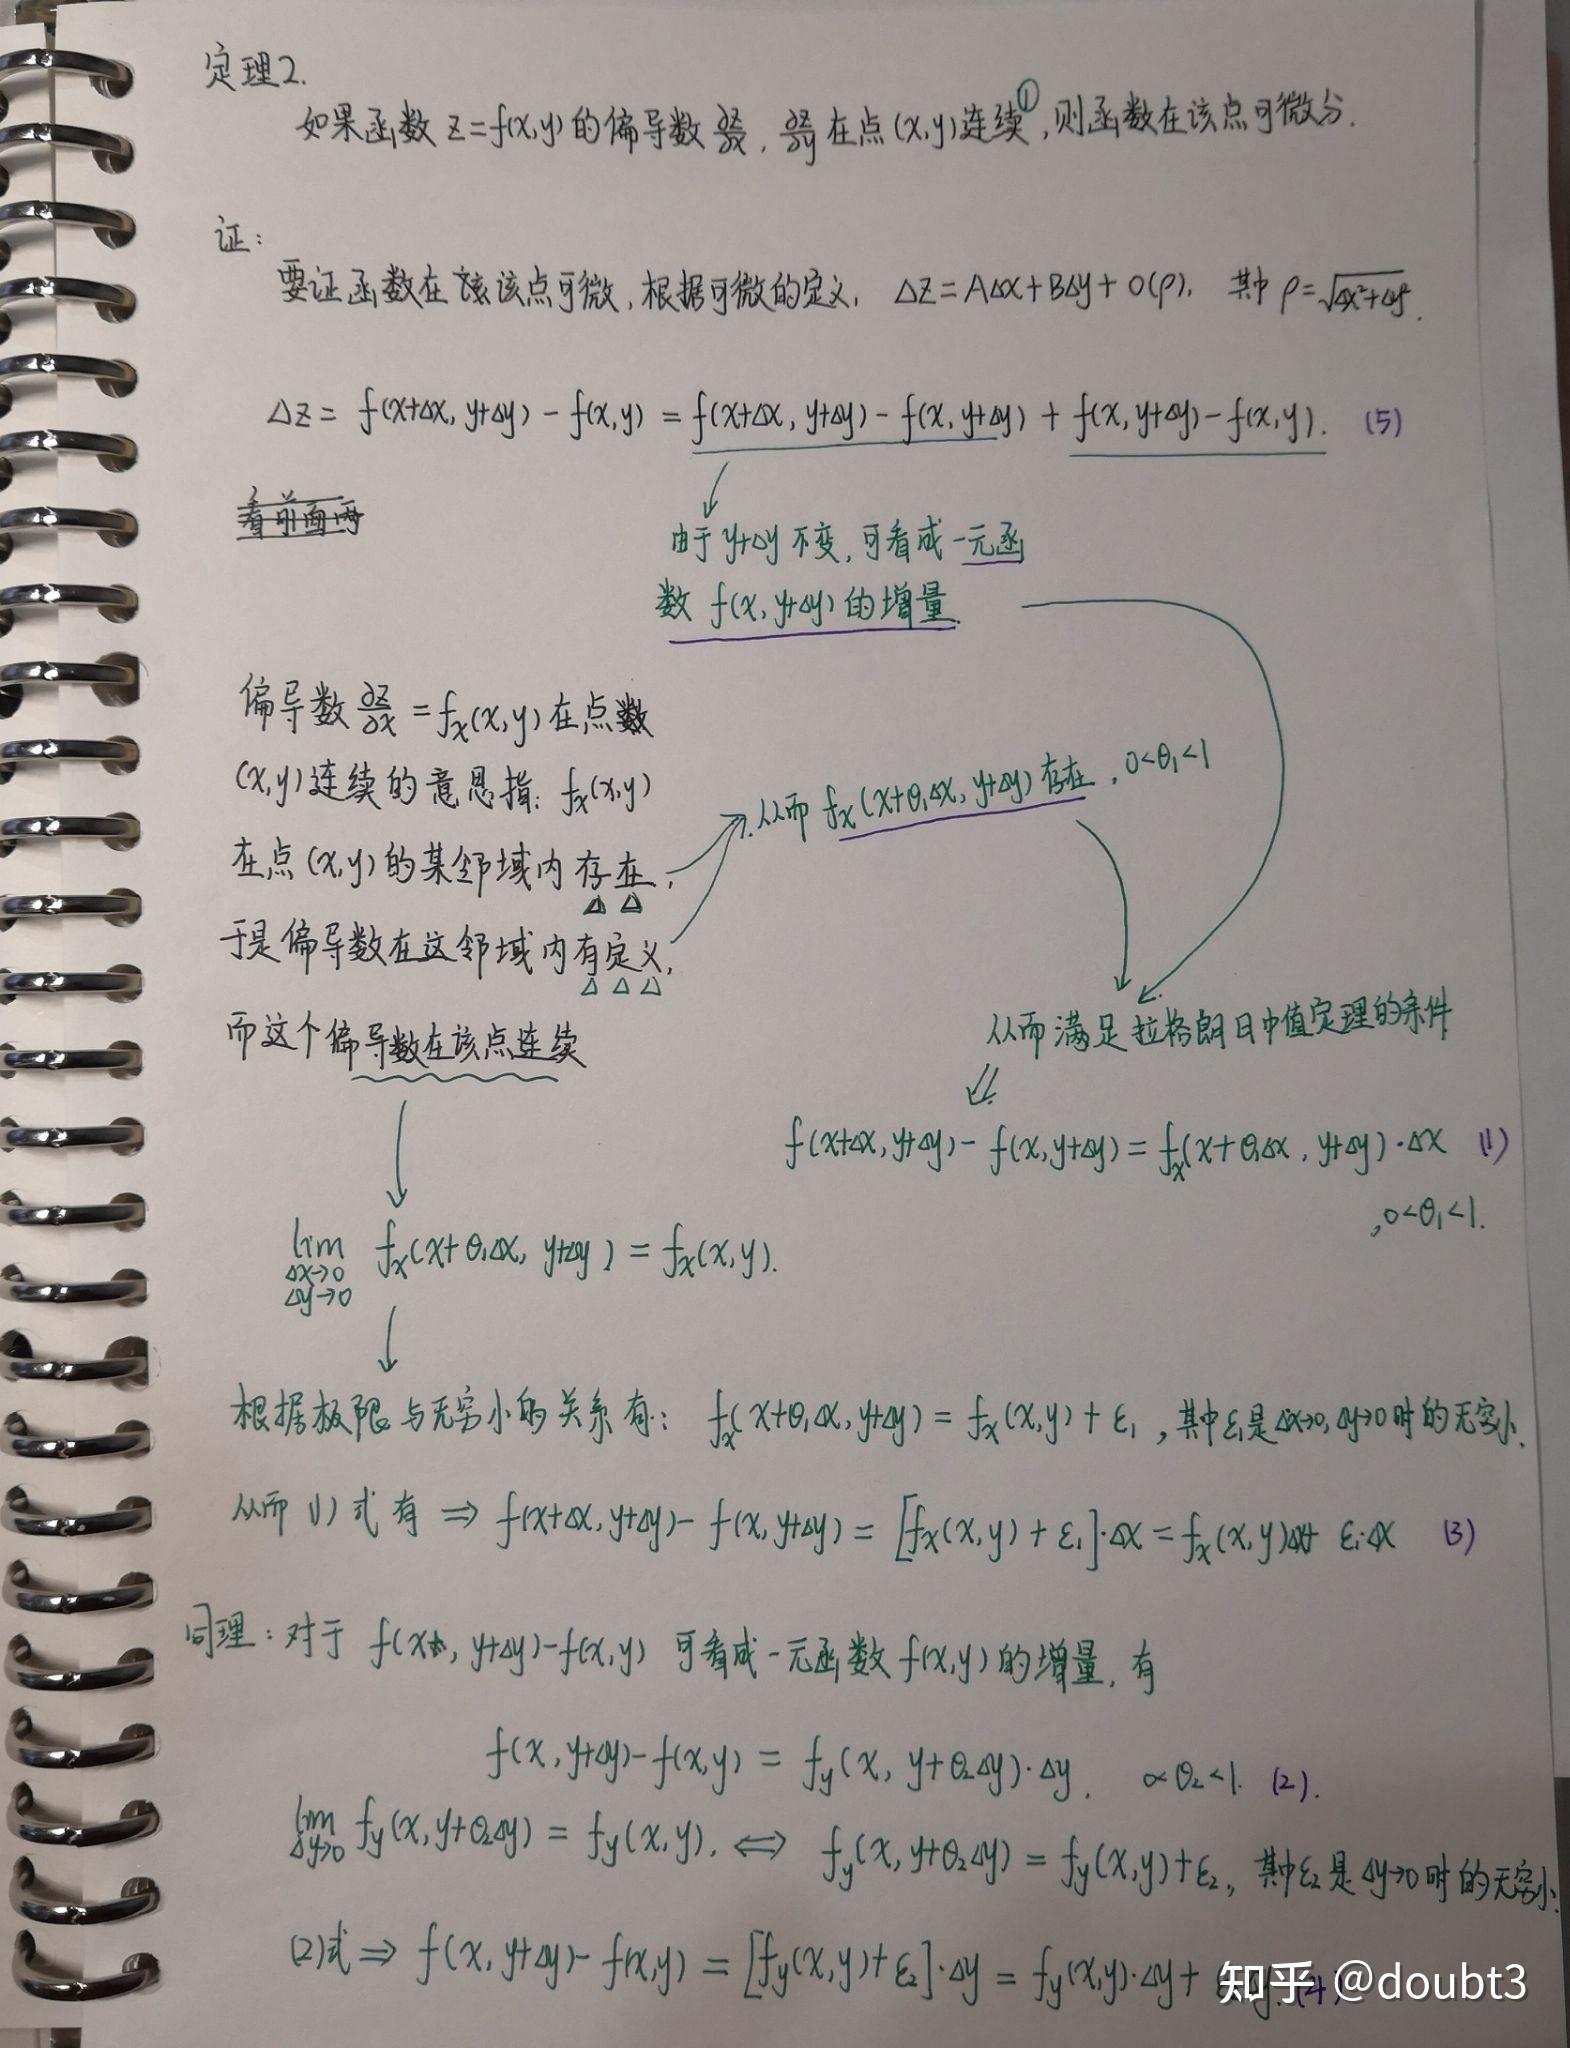 定理2.
如果函数 z=f(x,y)的偏导数 ∂z/∂x, ∂z/∂y 在点(x,y)连续①,则函数在该点可微分.
证:
要证函数在该该点可微,根据可微的定义, Δz=AΔx+BΔy+O(ρ), 其中 ρ=√(Δx²+Δy²).
Δz= f(x+Δx, y+Δy) - f(x,y) = f(x+Δx, y+Δy) - f(x, y+Δy) + f(x, y+Δy) - f(x,y). (5)
看前面两
由于 y+Δy 不变,可看成一元函
数 f(x, y+Δy) 的增量.
偏导数 ∂z/∂x = fx(x,y) 在点数
(x,y)连续的意思指: fx(x,y)
在点(x,y)的某邻域内存在,
于是偏导数在这邻域内有定义,
而这个偏导数在该点连续
从而 fx(x+θ1Δx, y+Δy) 存在, 0<θ1<1
从而满足拉格朗日中值定理的条件
f(x+Δx, y+Δy) - f(x, y+Δy) = fx(x+θ1Δx, y+Δy)·Δx (1)
,0<θ1<1.
lim fx(x+θ1Δx, y+Δy) = fx(x,y).
Δx→0
Δy→0
根据极限与无穷小的关系有: fx(x+θ1Δx, y+Δy) = fx(x,y) + ε1, 其中ε1是Δx→0, Δy→0时的无穷小.
从而 (1) 式有 ⇒ f(x+Δx, y+Δy) - f(x, y+Δy) = [fx(x,y) + ε1]·Δx = fx(x,y)Δx+ ε1·Δx (3)
同理: 对于 f(x, y+Δy)-f(x,y) 可看成一元函数 f(x,y) 的增量, 有
f(x, y+Δy)-f(x,y) = fy(x, y+θ2Δy)·Δy. 0<θ2<1. (2).
lim fy(x, y+θ2Δy) = fy(x,y). ⇔ fy(x, y+θ2Δy) = fy(x,y)+ε2, 其中ε2是Δy→0时的无穷小.
Δy→0
(2)式 ⇒ f(x, y+Δy) - f(x,y) = [fy(x,y)+ε2]·Δy = fy(x,y)·Δy + (4)
知乎 @doubt3